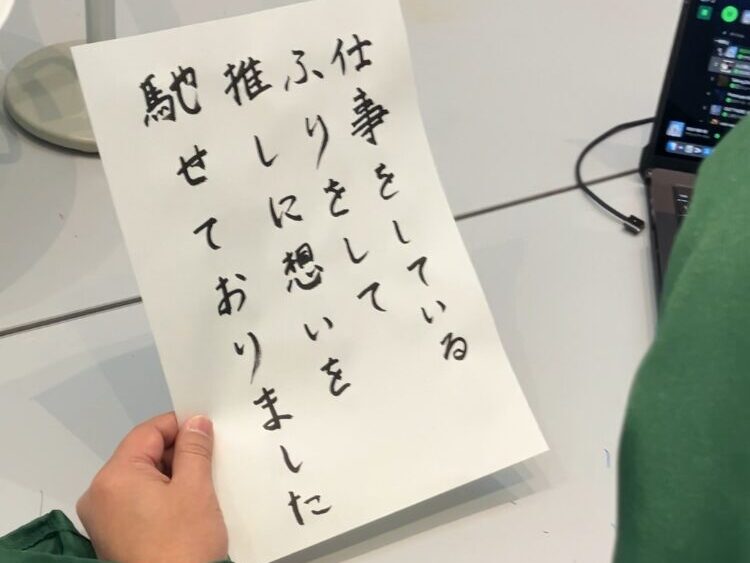 仕事をしている
ふりをして
推しに想いを
馳せておりました